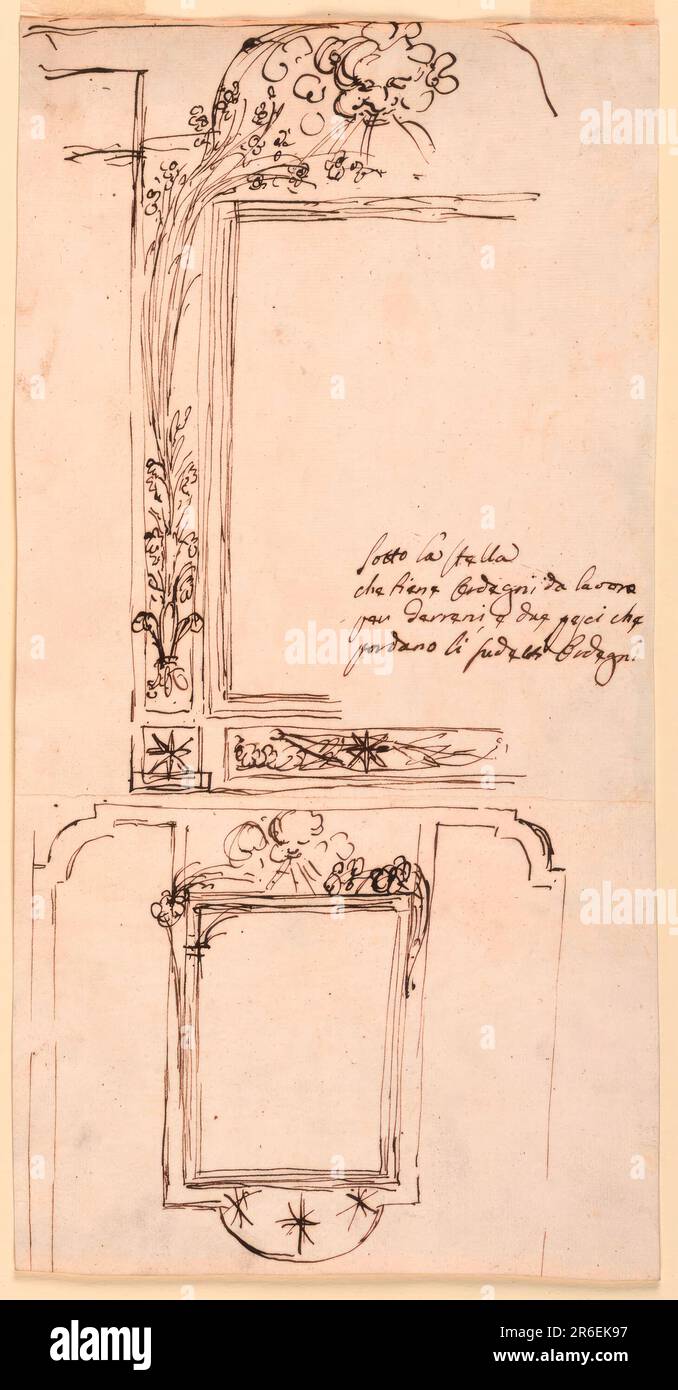 Sotto la stella
che tiene Ordegni da lavore
per terreni e due pesci che
li sudetti Ordegni
alamy
Image ID: 2R6EK97
www.alamy.com